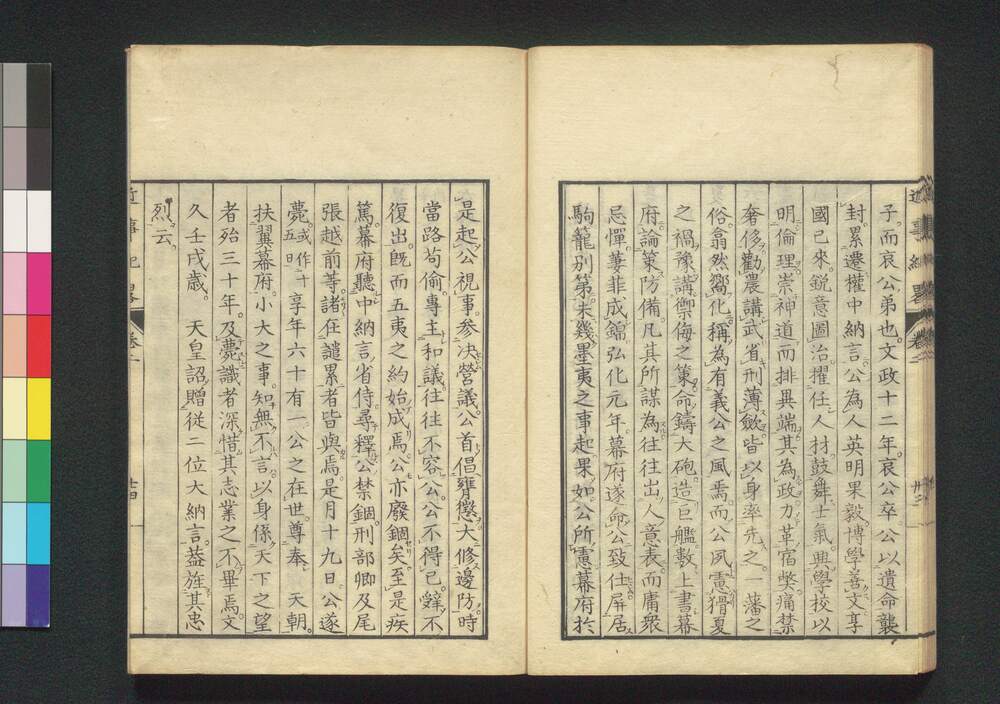 子。而哀公弟也。文政十二年。哀公卒公以遺命襲
封。累遷權中納言。公為人英明果毅。博學善文享
國已來。銳意圖治。擢任人材。鼓舞士氣。興學校以
明倫理崇神道而排異端。其為政力革宿弊。痛禁
奢侈。勸農講武。省刑薄斂。皆以身率先之。一藩之
俗。翕然嚮化。稱為有義公之風焉。而公夙憲猾夏
之禍。豫講禦侮之策。命鑄大砲。造巨艦。數上書幕
府。論策防備。凡其所謀為往往出人意表。而庸衆
忌憚。萋菲成錦。弘化元年。幕府遂命公致仕屏居
駒籠別第。未幾墨夷之事起。果如公所慮。幕府於
是起公視事。參決營議。公首倡膺懲大修邊防。時
當路苟偷。專主和議。往往不容公。公不得已辭。不
復出。旣而五夷之約始成焉。公亦廢錮矣。至是疾
篤。幕府聽中納言省侍。尋釋公禁錮。刑部卿及尾
張越前等。諸在譴累者皆與焉。是月十九日。公遂
薨。或作十五日享年六十有一。公之在世。尊奉 天朝。
扶翼幕府。小大之事。知無不言。以身係天下之望
者殆三十年。及薨。識者深惜其志業之不畢焉。文
久壬戌歲。 天皇詔贈從二位大納言。益旌其忠
烈云。
近事紀畧 卷二 廿四